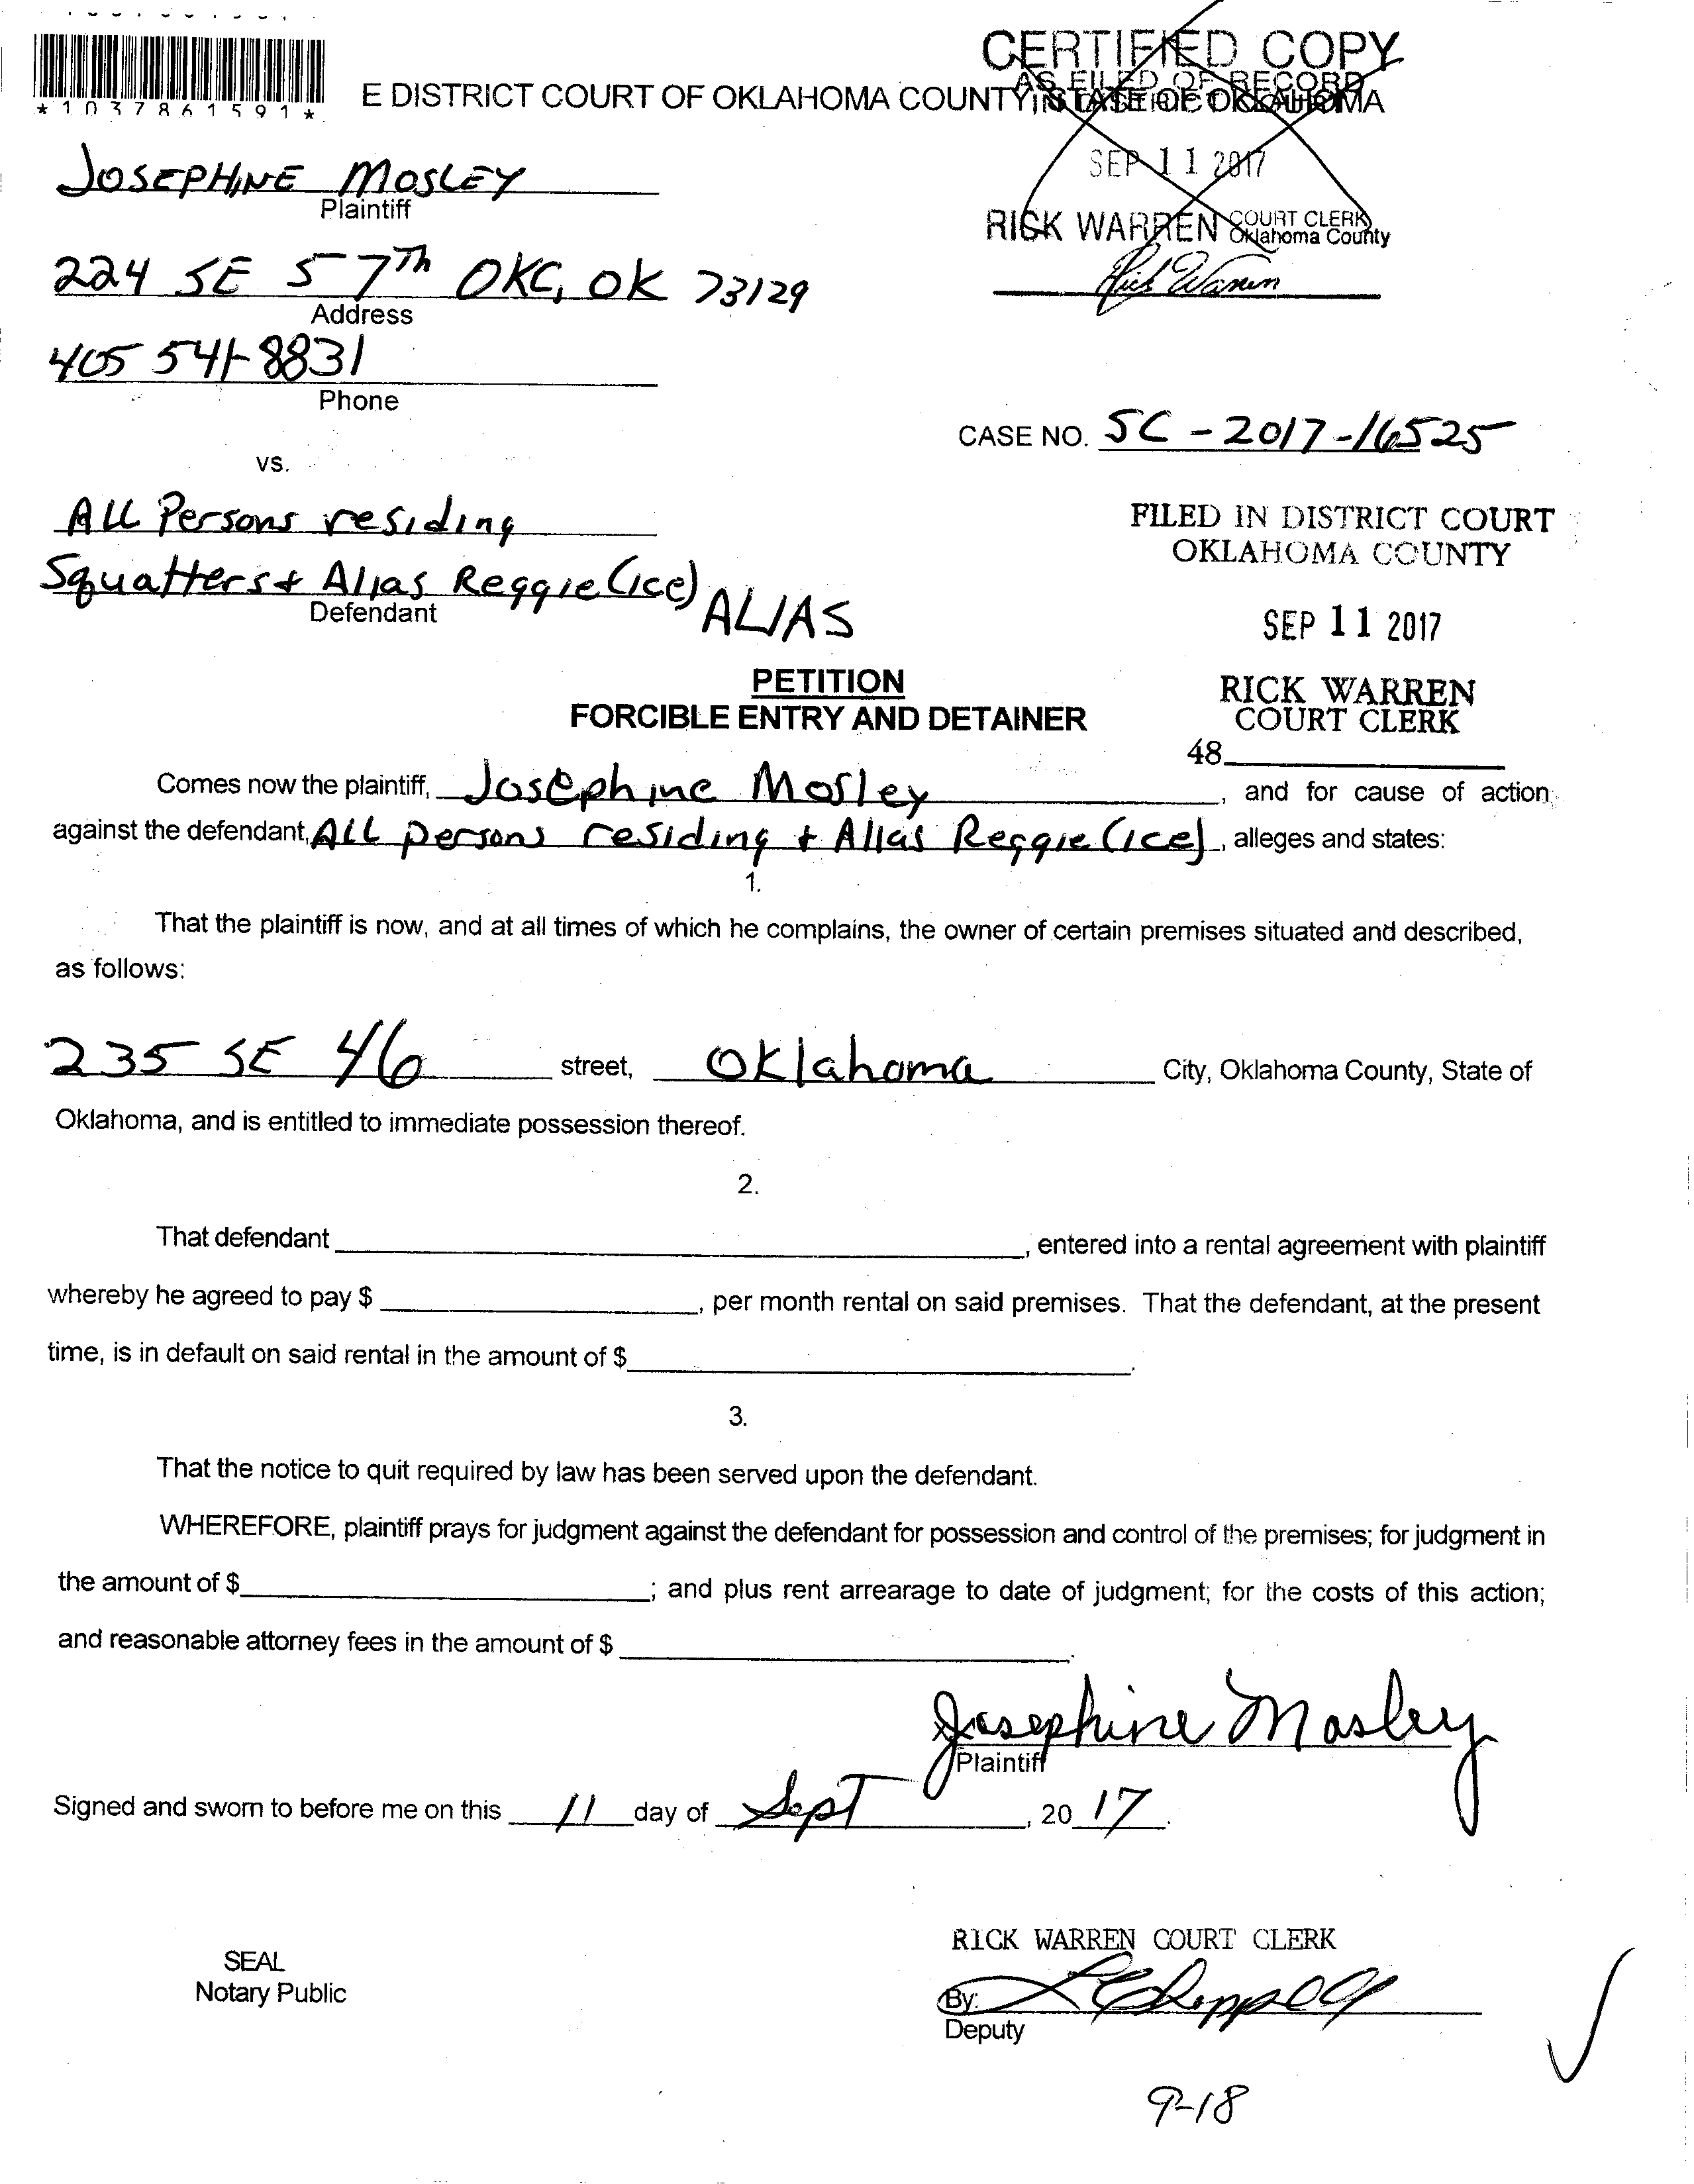 CERTIFIED COPY
AS FILED OF RECORD
*1037861591*
E DISTRICT COURT OF OKLAHOMA COUNTY, STATE OF OKLAHOMA
SEP 11 2017
RICK WARREN COURT CLERK
Oklahoma County
Rick Warren
JOSEPHINE MOSLEY
Plaintiff
224 SE 57Th OKC, OK 73129
Address
405 541-8831
Phone
CASE NO. SC-2017-16525
vs.
ALL Persons residing
Squatters + Alias Reggie (ice) ALIAS
Defendant
FILED IN DISTRICT COURT
OKLAHOMA COUNTY
SEP 11 2017
RICK WARREN
COURT CLERK
48
PETITION
FORCIBLE ENTRY AND DETAINER
Comes now the plaintiff, Josephine Mosley, and for cause of action
against the defendant, ALL persons residing + Alias Reggie (ice), alleges and states:
1.
That the plaintiff is now, and at all times of which he complains, the owner of certain premises situated and described,
as follows:
235 SE 46 street, Oklahoma City, Oklahoma County, State of
Oklahoma, and is entitled to immediate possession thereof.
2.
That defendant , entered into a rental agreement with plaintiff
whereby he agreed to pay $ , per month rental on said premises. That the defendant, at the present
time, is in default on said rental in the amount of $ .
3.
That the notice to quit required by law has been served upon the defendant.
WHEREFORE, plaintiff prays for judgment against the defendant for possession and control of the premises; for judgment in
the amount of $ ; and plus rent arrearage to date of judgment; for the costs of this action;
and reasonable attorney fees in the amount of $ .
x Josephine Mosley
Plaintiff
Signed and sworn to before me on this 11 day of Sept, 20 17.
SEAL
Notary Public
RICK WARREN COURT CLERK
By:
Deputy
9-18